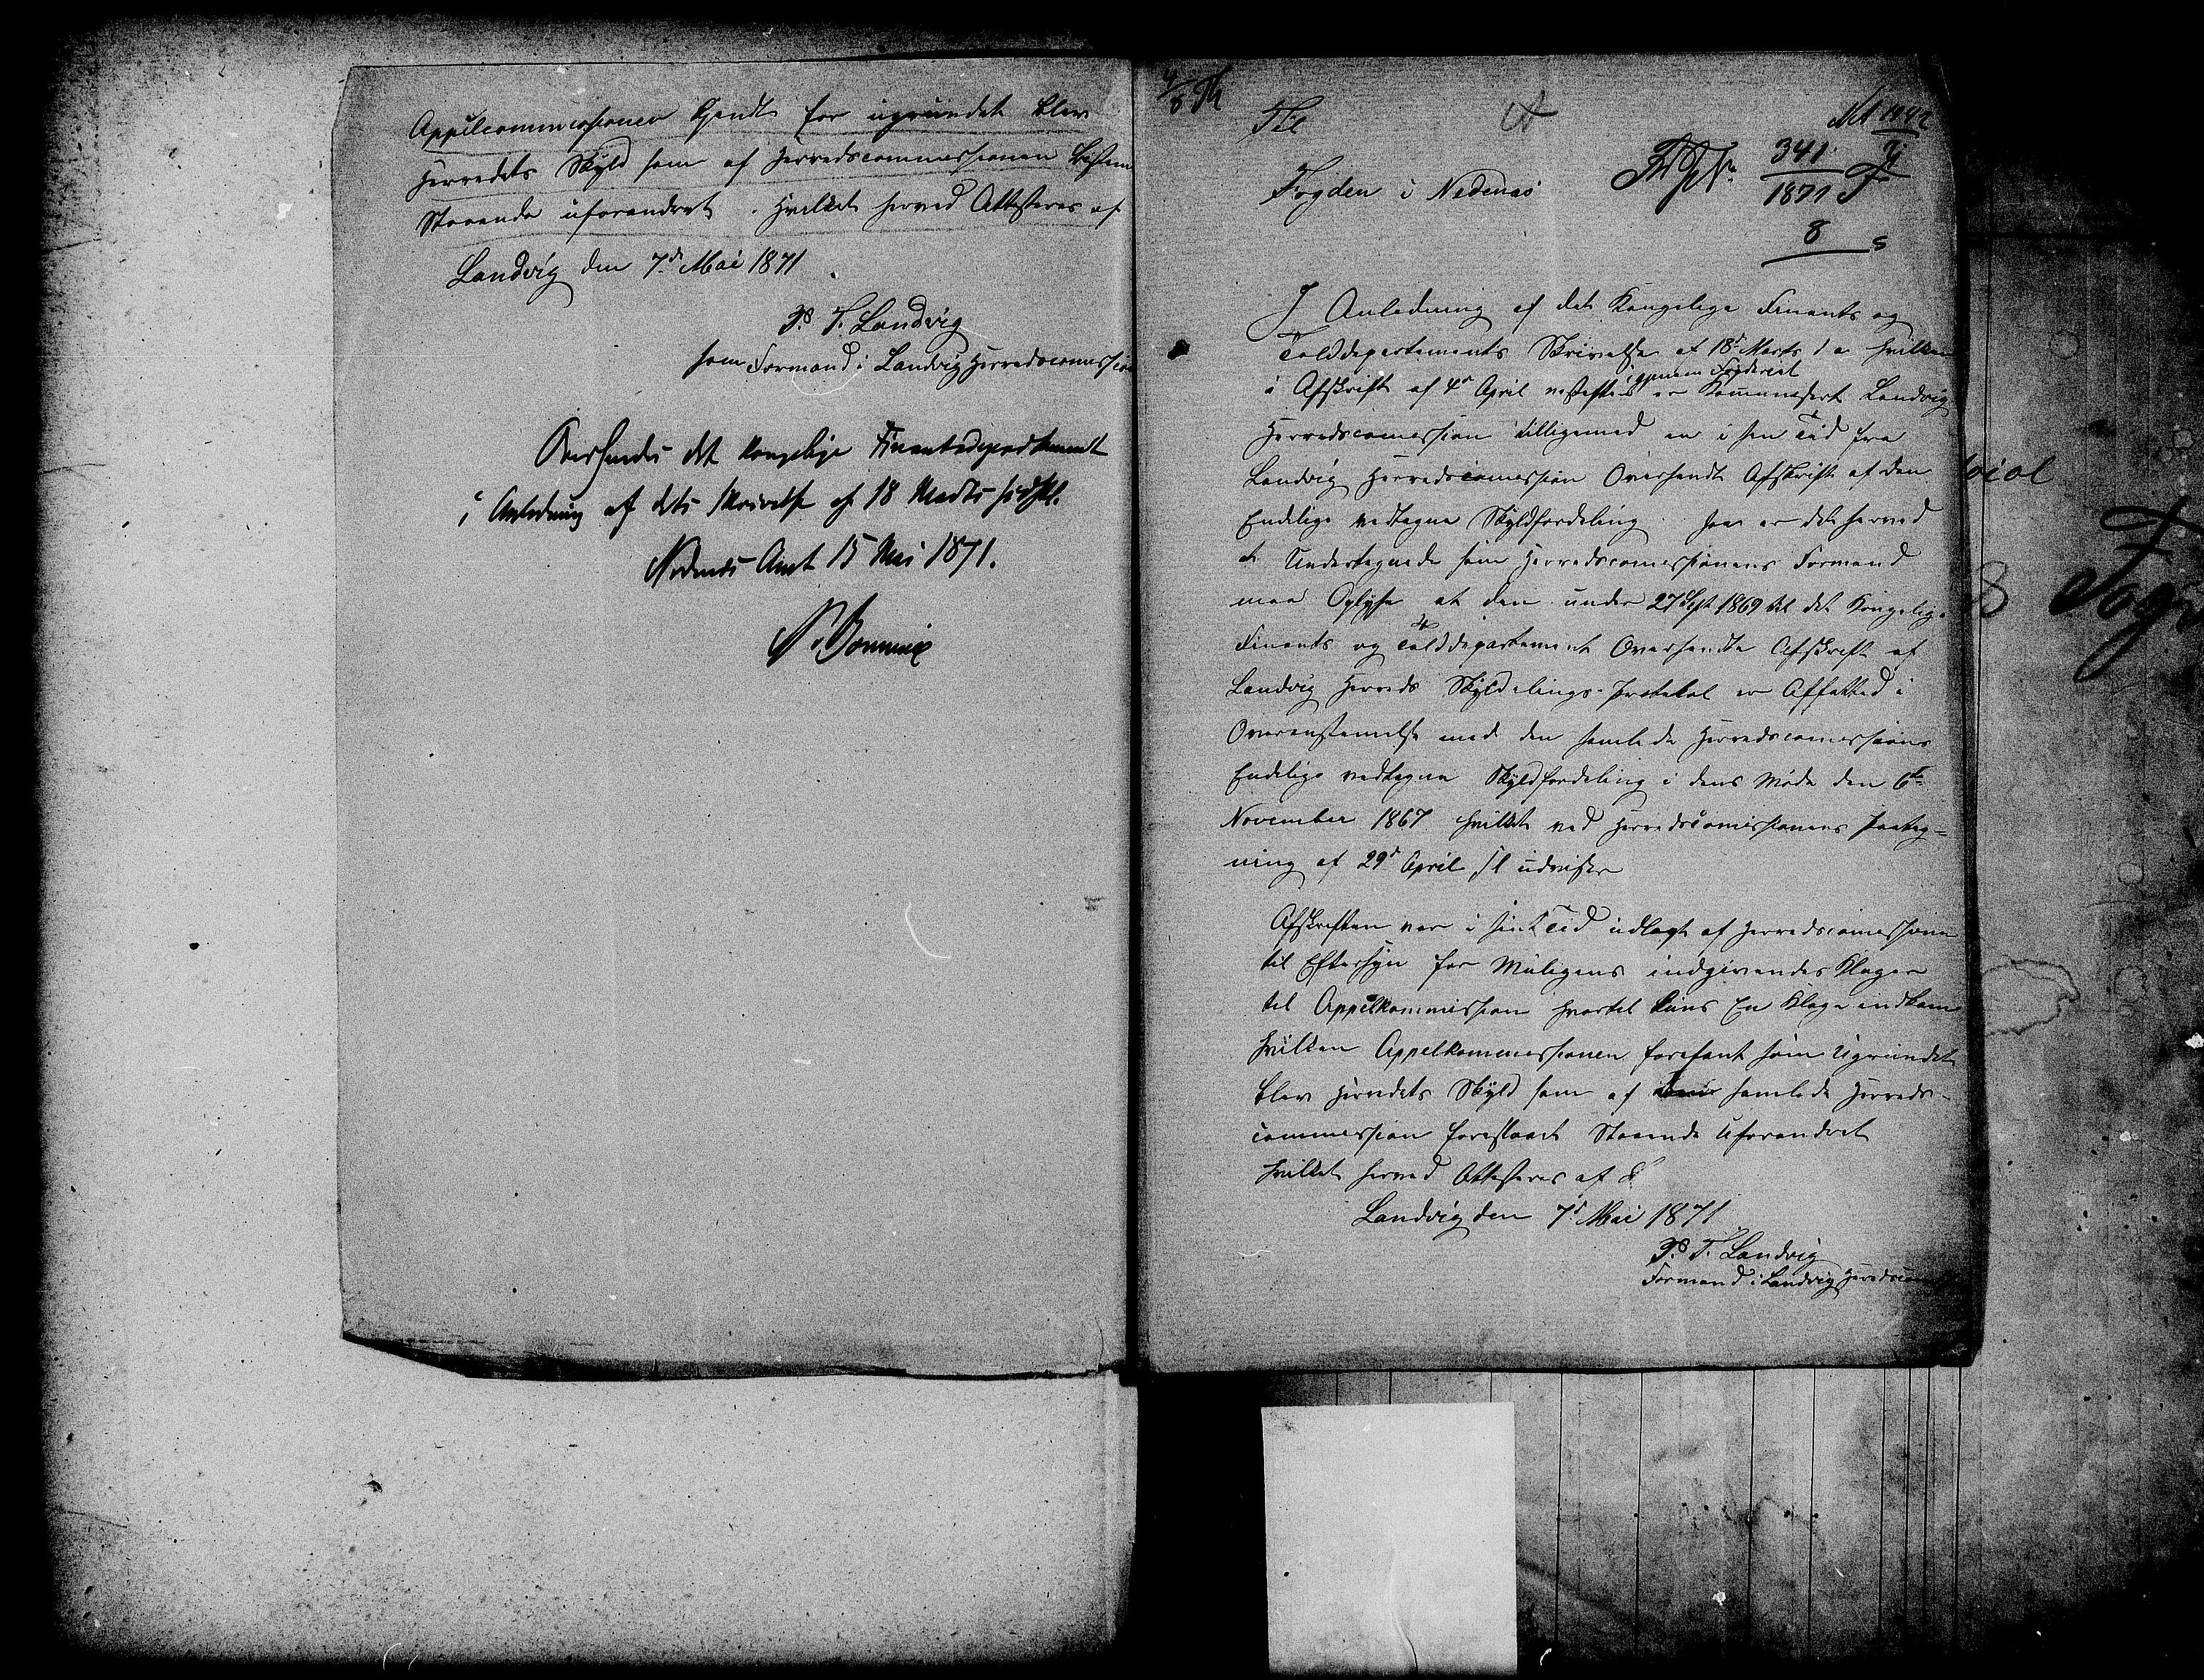 Appelcommissionen kjendt for ugrundet blev
Herredets Skyld som af Herredscommissionen bestem
Staaende uforandret. Hvilket herved Attesteres af
Landvig den 7de Mai 1871
P. T. Landvig
som Formand i Landvig Herredscomission
Oversendes det kongelige Finantsdepartement
i Anledning af dets Skrivelse af 18 Marts sidstl.
Nedenes Amt 15 Mai 1871.
Til
Fogden i Nedenæs
341
1871
8
I Anledning af det Kongelige Finants og
Tolddepartements Skrivelse af 18d Marts d a hvilken
i Afskrift af 4de April næstefter igjennem Fogderiet er Kommuniseret Landvig
Herredscomission tilligemed en i sin Tid fra
Landvig Herredscomission Oversendt Afskrift af den
Endelige vedtagne Skyldfordeling. saa er det herved
at Undertegnede som Herredscomissionens Formand
maa Oplyse at den under 27 Sept 1869 til det Kongelige
Finants og Tolddepartement Oversendte Afskrift af
Landvig Herreds Skyldelings-Protokol er Affatted i
Overenstemmelse med den samlede Herredscomissions
Endelige vedtagne Skyldfordeling i dens Møde den 6te
November 1867 hvilket ved Herredscomissionens Paateg-
ning af 29d April sl udviser
Afskriften var i sin Tid udlagt af Herredscomissionen
til Eftersyn for Muligens indgivendes Klager
til Appelkommission hvortil kuns En Klage indkom
hvilken Appelkommissionen forefant som Ugrundet
blev Herredets Skyld som af den samlede Herreds-
commission foreslaaet Staaende Uforandret
hvilket herved Attesteres af
Landvig den 7d Mai 1871
P. T. Landvig
Formand i Landvig Herredscom
Fog